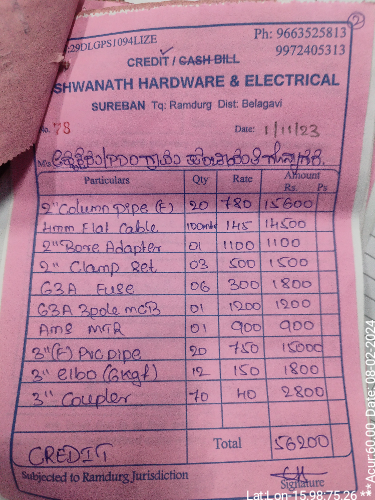 :29DLGPS1094LIZE
Ph: 9663525813
9972405313
②
CREDIT / CASH BILL
SHWANATH HARDWARE & ELECTRICAL
SUREBAN Tq: Ramdurg Dist: Belagavi
No. 78 Date: 1/11/23
M/s
Particulars Qty Rate Amount
Rs. Ps
2" Column pipe (F) 20 780 15600
4mm Flat Cable 100mtr 145 14500
2" Bore Adapter 01 1100 1100
2" Clamp Set 03 500 1500
G3A Fuse 06 300 1800
G3A 3pole MCB 01 1200 1200
01 900 900
3" (F) PVC pipe 20 750 15000
3" elbo (6kgf) 12 150 1800
3" Coupler 70 40 2800
CREDIT Total 56200
Subjected to Ramdurg Jurisdiction Signature
Lat Lon: 15.98:75.26 ***Acur:60.00 Date: 08-02-2024